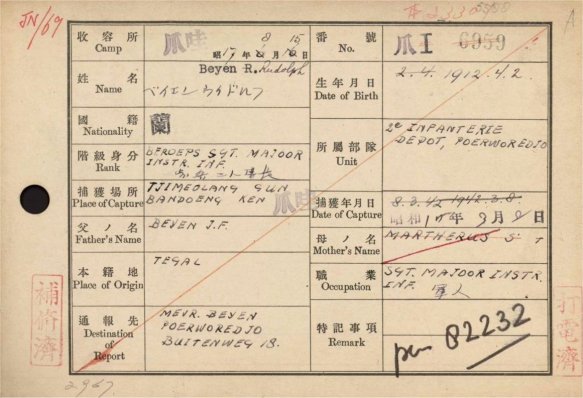 JN/69
A
收容所
Camp
爪哇
8 15
昭17年 月 日
番號
No.
爪I 6959
姓名
Name
Beyen R. Rudolph
生年月日
Date of Birth
2.4.1912.4.2.
國籍
Nationality
蘭
所屬部隊
Unit
2e INFANTERIE
DEPOT, POERWOREDJO
階級身分
Rank
BEROEPS SGT. MAJOOR
INSTR. INF.
捕獲場所
Place of Capture
TJIMEOLANG GUN
BANDOENG KEN
爪哇
捕獲年月日
Date of Capture
8.3.42 1942.3.8.
昭和17年 月8日
父ノ名
Father's Name
BEYEN J.F.
母ノ名
Mother's Name
MARTHERUS S T
本籍地
Place of Origin
TEGAL
職業
Occupation
SGT. MAJOOR INSTR.
INF. 軍人
通報先
Destination of Report
MEVR. BEYEN
POERWOREDJO
BUITENWEG 18.
特記事項
Remark
pen 82232
補修濟
打電濟
2967